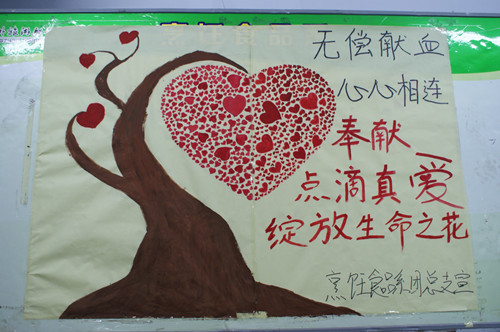 无偿献血
心心相连
奉献
点滴真爱
绽放生命之花
烹饪食品系团总支宣